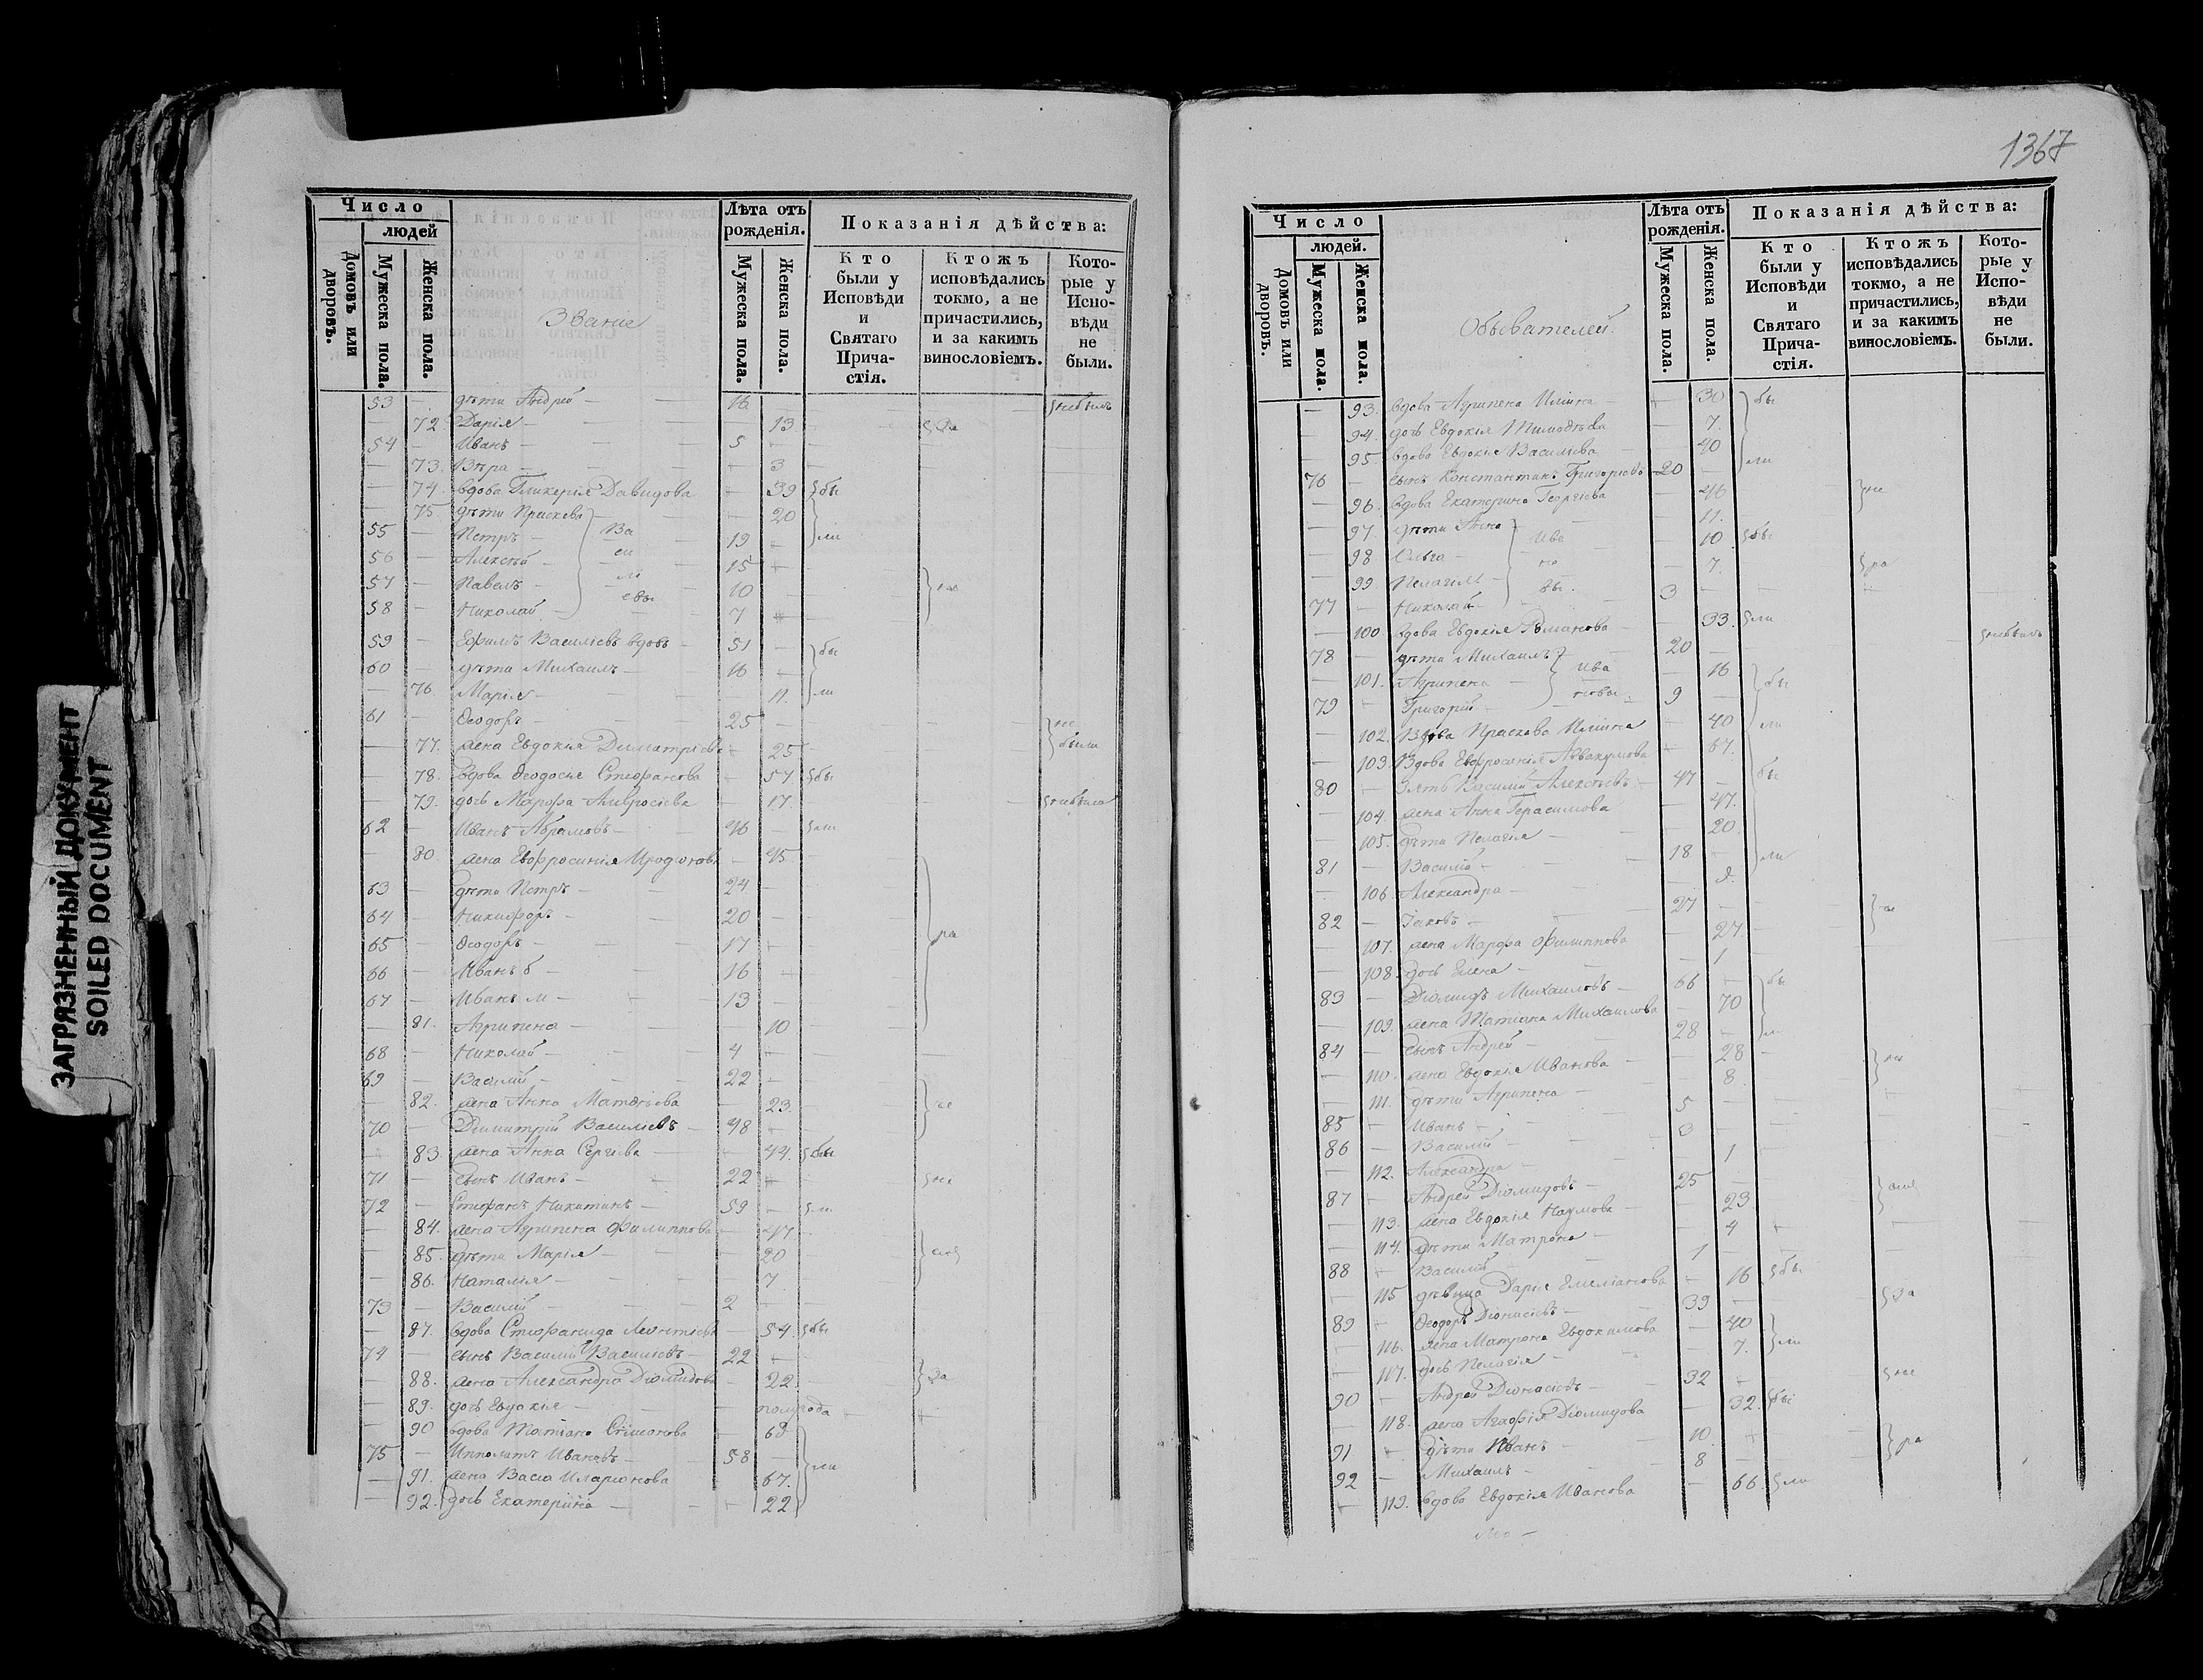 ЗАГРЯЗНЕННЫЙ ДОКУМЕНТ
SOILED DOCUMENT
Число
людей
Домовъ или дворовъ.
Мужеска пола.
Женска пола.
Звание
Лѣта отъ рожденія.
Мужеска пола.
Женска пола.
Показанія дѣйства:
Кто были у Исповѣди и Святаго Причастія.
Ктожъ исповѣдались токмо, а не причастились, и за какимъ винословіемъ.
Которые у Исповѣди не были.
53 — дѣти Андрей — 16
— 72. Дарія — 13
54 — Иванъ — 5
— 73. Вѣра — 3
— 74. вдова Гликерія Давидова — 39 бы
— 75. дѣти Праскева — 20
55 — Петръ — 19 ли
56 — Алексѣй — 15
57 — Павелъ — 10
58 — Николай — 7
59 — Ефимъ Василіевъ вдовъ — 51 бы
60 — дѣти Михаилъ — 16
— 76. Марія — 11. ли
61 — Ѳеодоръ — 25 не
— 77. жена Евдокія Димитріева 25 были
— 78. вдова Ѳеодосія Стефанова 57 бы
— 79. дочь Марѳа Амвросіева 17
62 — Иванъ Абрамовъ — 46 ли
— 80. жена Евфросинія 45
63 — дѣти Петръ — 24
64 — Никифоръ — 20
65 — Ѳеодоръ — 17 ра
66 — Иванъ б — 16
67 — Иванъ м — 13
— 81. Агрипена — 10
68 — Николай — 4
69 — Василій — 22
— 82. жена Анна Матѳѣева 23. не
70 — Димитрій Василіевъ 48
— 83. жена Анна Сергіева 44. бы
71 — сынъ Иванъ — 22
72 — Стефанъ Никитинъ — 59 ли
— 84. жена Агрипена Филиппова 47
— 85. дѣти Марія — 20
— 86. Наталія — 7
73 — Василій — 2
— 87. вдова Стефанида Леонтіева 54. бы
74 — сынъ Василій Василіевъ — 22
— 88. жена Александра Діомидова 22. за
— 89. дочь Евдокія — полугода
— 90 вдова Татіана Сѵмонова
75 — Ипполитъ Ивановъ — 58 ли
— 91. жена Васса Иларіонова 67.
— 92. дочь Екатерина — 22
1367
Число
людей.
Домовъ или дворовъ.
Мужеска пола.
Женска пола.
Обывателей.
Лѣта отъ рожденія.
Мужеска пола.
Женска пола.
Показанія дѣйства:
Кто были у Исповѣди и Святаго Причастія.
Ктожъ исповѣдались токмо, а не причастились, и за какимъ винословіемъ.
Которые у Исповѣди не были.
— 93. вдова Агрипена Иліина 30 бы
— 94. дочь Евдокія Тимоѳѣева 7.
— 95. вдова Евдокія Василіева 40 ли
76 — сынъ Константинъ Григоріевъ 20 —
— 96. вдова Екатерина Георгіева 46 не
— 97. дѣти Анна — Ива 11.
— 98. Ольга — но 10 бы
— 99. Пелагія — вы. 7. ра
77 — Николай — 3
— 100. вдова Евдокія Романова 33. ли
78 — дѣти Михаилъ Ива 20
— 101. Агрипена — новы. 16 бы
79 — Григорій — 9
— 102. Вдова Праскева Иліина 40 ли
— 103. Вдова Евфросинія Аввакумова 67.
80 — Зять Василій Алексѣевъ 47 — бы
— 104. жена Анна Герасимова 47.
— 105. дѣти Пелагія — 20.
81 — Василій — 18 ли
— 106. Александра —
82 — Іаковъ — 27
— 107. жена Марѳа Филиппова 27
— 108. дочь Елена — 1
83 — Діомидъ Михаиловъ — 66 бы
— 109. жена Татіана Михаилова 70
84 — сынъ Андрей — 28
— 110. жена Евдокія Иванова 28
— 111. дѣти Агрипена — 8
85 — Иванъ — 5
86 — Василій — 3
— 112. Александра — 1
87 — Андрей Діомидовъ — 25
— 113. жена Евдокія Наумова 23
— 114. дѣти Матрона — 4
88 — Василій — 1
— 115 дѣвица Дарія Емеліанова 16 бы
89 — Ѳеодоръ Діонисіевъ — 39 за
— 116. жена Матрона Евдокимова 40 ли
— 117. дочь Пелагія — 7.
90 — Андрей Діонисіевъ — 32 не
— 118. жена Агафія Діомидова 32. бы
91 — дѣти Иванъ — 10 ра
92 — Михаилъ — 8
— 119. вдова Евдокія Иванова 66. ли